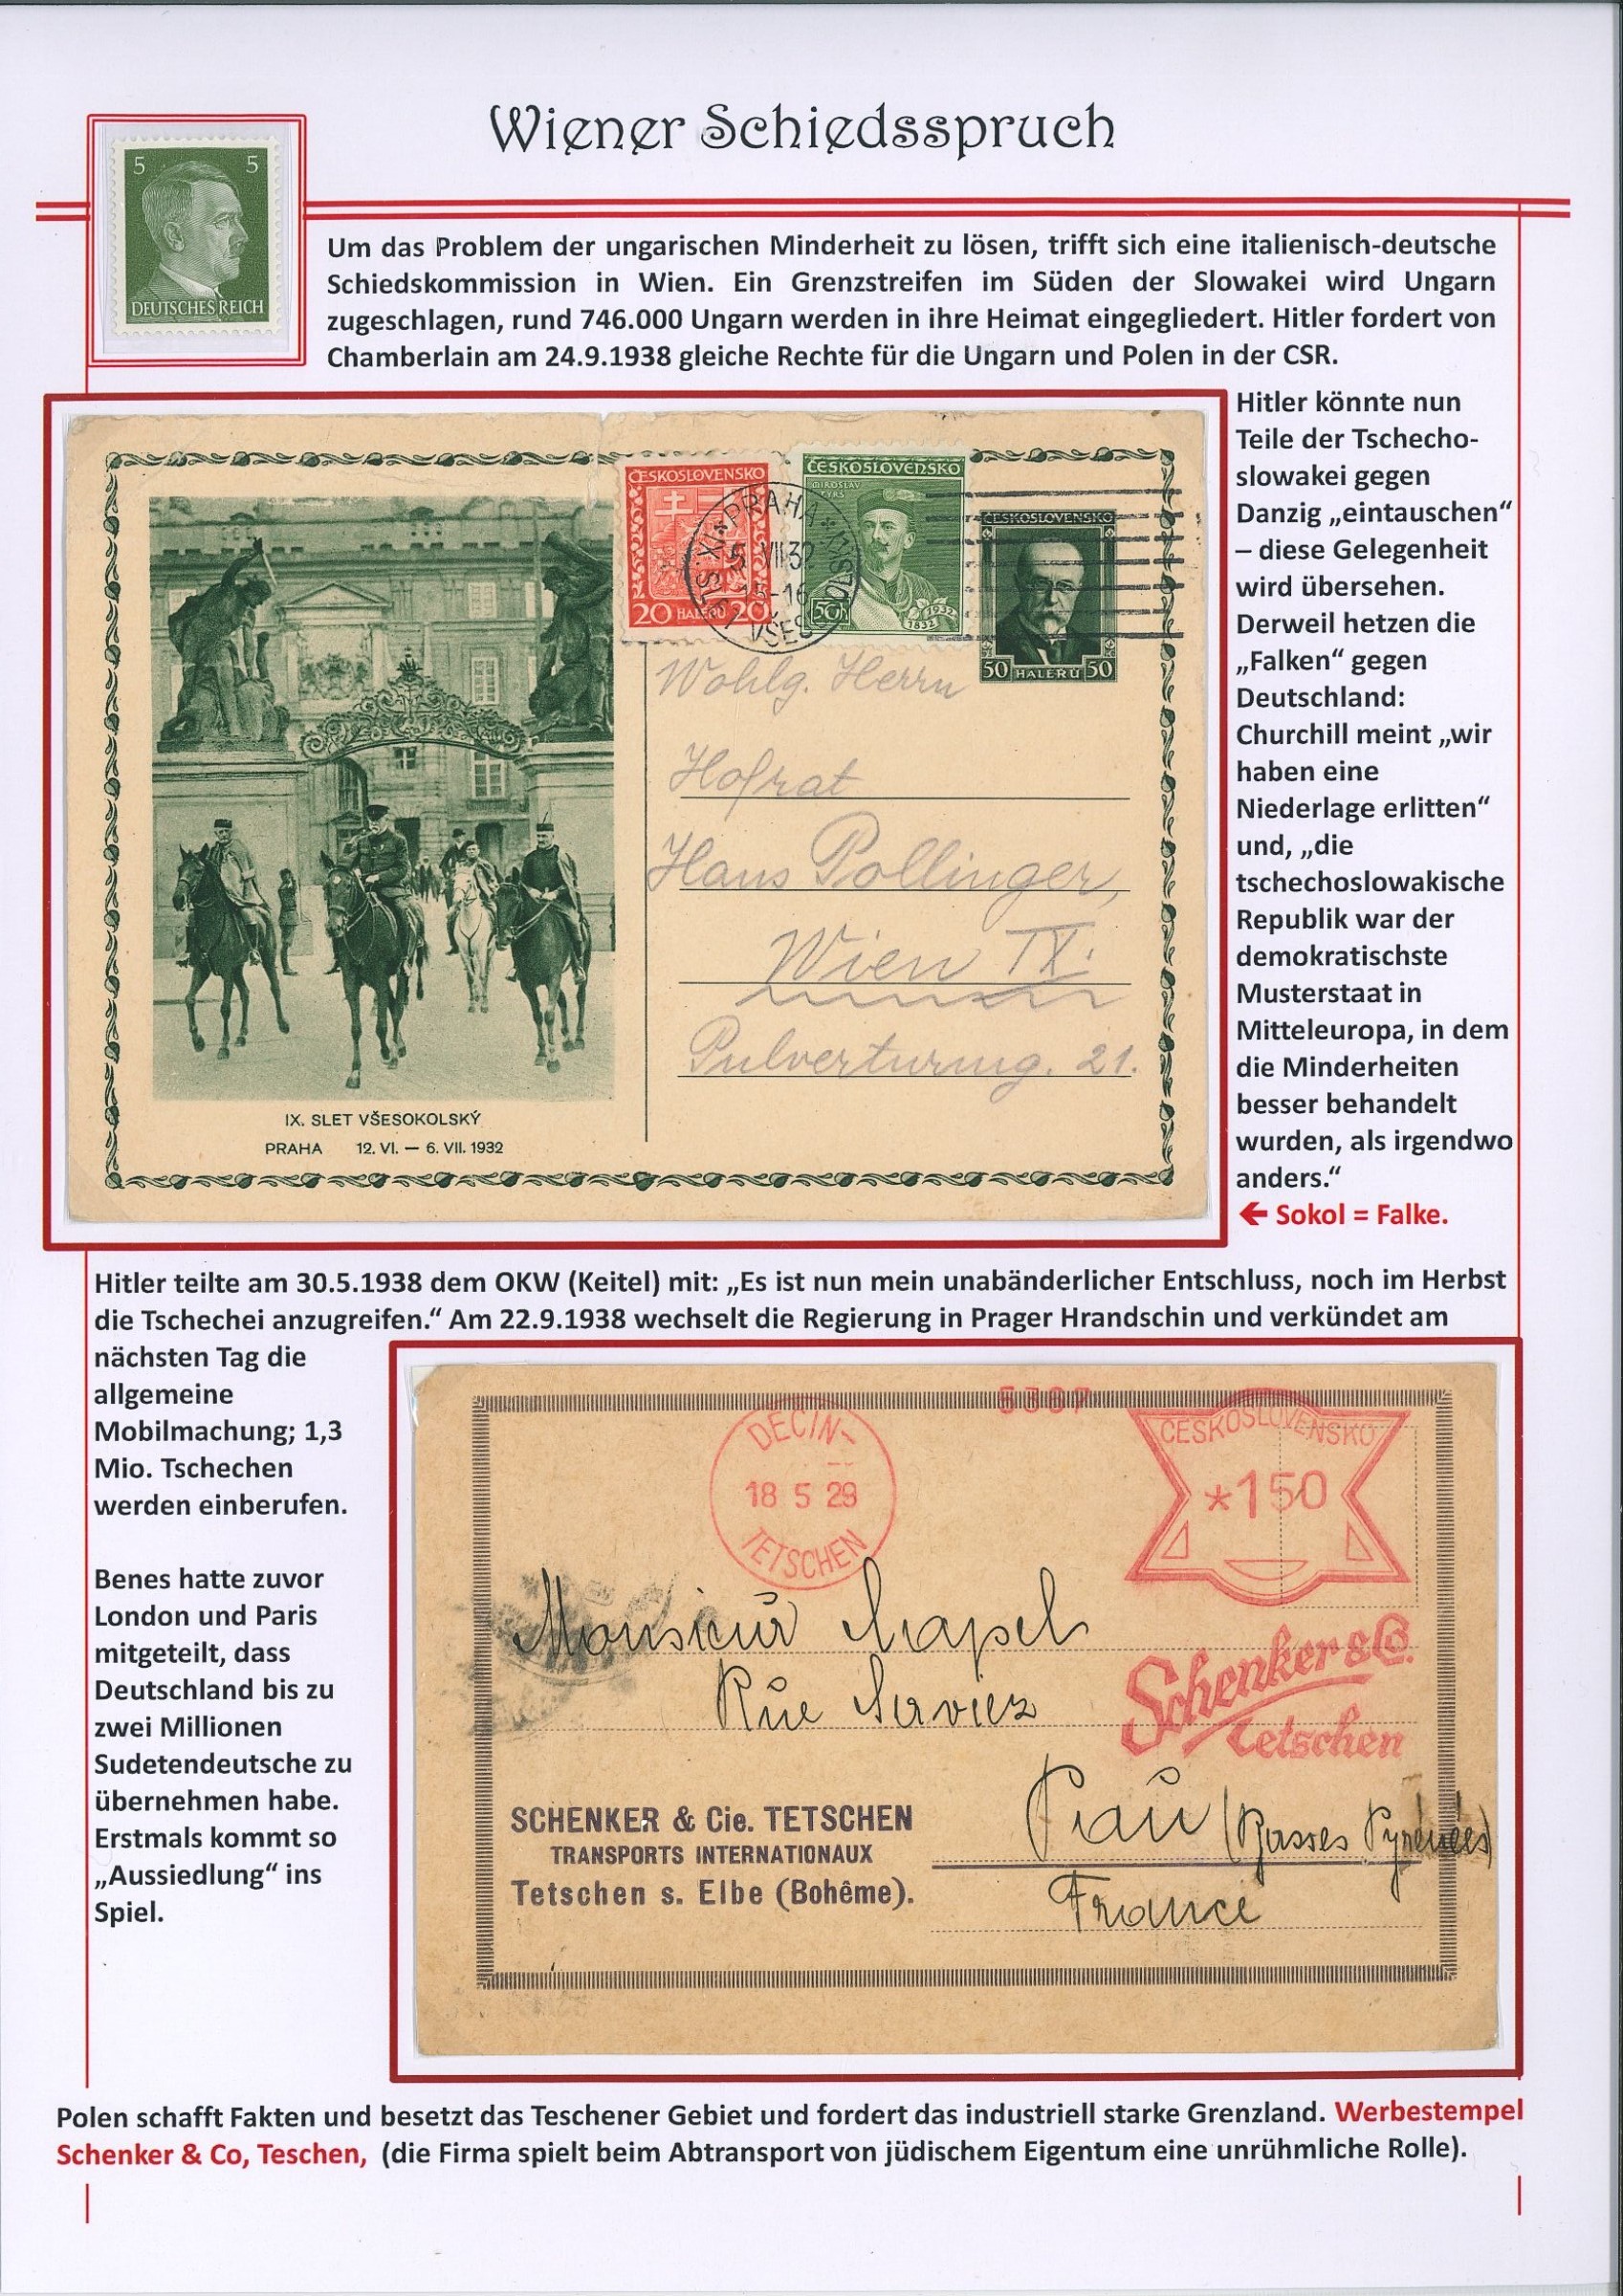 Wiener Schiedsspruch
5 5
DEUTSCHES REICH
Um das Problem der ungarischen Minderheit zu lösen, trifft sich eine italienisch-deutsche
Schiedskommission in Wien. Ein Grenzstreifen im Süden der Slowakei wird Ungarn
zugeschlagen, rund 746.000 Ungarn werden in ihre Heimat eingegliedert. Hitler fordert von
Chamberlain am 24.9.1938 gleiche Rechte für die Ungarn und Polen in der CSR.
ČESKOSLOVENSKO
20 HALÉŘŮ 20
ČESKOSLOVENSKO
MIROSLAV
TYRŠ
50h
1932
1832
ČESKOSLOVENSKO
50 HALÉŘŮ 50
PRAHA
5 VII 32
15-16
Wohlg. Herrn
Hofrat
Hans Pollinger,
Wien IX.
Pulverturmg. 21.
IX. SLET VŠESOKOLSKÝ
PRAHA 12. VI. — 6. VII. 1932
Hitler könnte nun
Teile der Tschecho-
slowakei gegen
Danzig „eintauschen“
– diese Gelegenheit
wird übersehen.
Derweil hetzen die
„Falken“ gegen
Deutschland:
Churchill meint „wir
haben eine
Niederlage erlitten“
und, „die
tschechoslowakische
Republik war der
demokratischste
Musterstaat in
Mitteleuropa, in dem
die Minderheiten
besser behandelt
wurden, als irgendwo
anders.“
← Sokol = Falke.
Hitler teilte am 30.5.1938 dem OKW (Keitel) mit: „Es ist nun mein unabänderlicher Entschluss, noch im Herbst
die Tschechei anzugreifen.“ Am 22.9.1938 wechselt die Regierung in Prager Hrandschin und verkündet am
nächsten Tag die
allgemeine
Mobilmachung; 1,3
Mio. Tschechen
werden einberufen.
Benes hatte zuvor
London und Paris
mitgeteilt, dass
Deutschland bis zu
zwei Millionen
Sudetendeutsche zu
übernehmen habe.
Erstmals kommt so
„Aussiedlung“ ins
Spiel.
5367
DECIN-
18 5 29
TETSCHEN
ČESKOSLOVENSKO
*150
Schenker & Co.
Tetschen
Monsieur
Rue Serviez
Pau (Basses Pyrénées)
France
SCHENKER & Cie. TETSCHEN
TRANSPORTS INTERNATIONAUX
Tetschen s. Elbe (Bohême).
Polen schafft Fakten und besetzt das Teschener Gebiet und fordert das industriell starke Grenzland. Werbestempel
Schenker & Co, Teschen, (die Firma spielt beim Abtransport von jüdischem Eigentum eine unrühmliche Rolle).